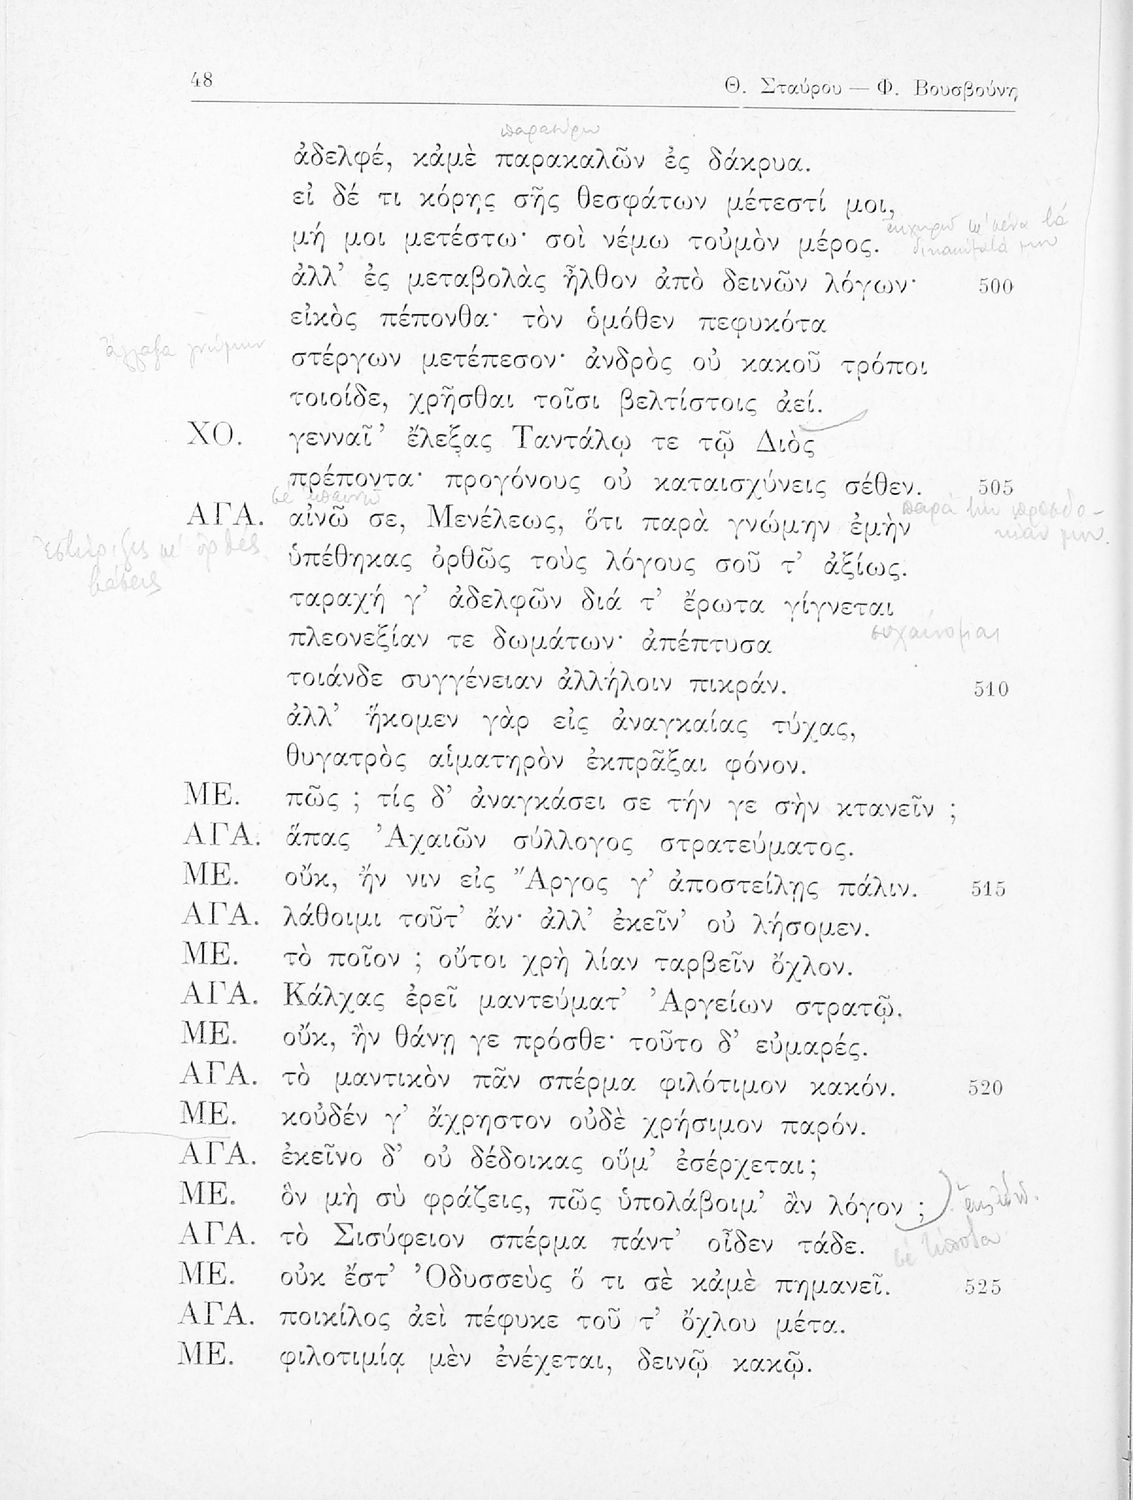 48
Θ. Σταύρου — Φ. Βουσβούνη
ἀδελφέ, κἀμὲ παρακαλῶν ἐς δάκρυα.
εἰ δέ τι κόρης σῆς θεσφάτων μέτεστί μοι,
μή μοι μετέστω· σοὶ νέμω τοὐμὸν μέρος.
ἀλλ’ ἐς μεταβολὰς ἦλθον ἀπὸ δεινῶν λόγων· 500
εἰκὸς πέπονθα· τὸν ὁμόθεν πεφυκότα
ἄλλαξα γνώμην
στέργων μετέπεσον· ἀνδρὸς οὐ κακοῦ τρόποι
τοιοίδε, χρῆσθαι τοῖσι βελτίστοις ἀεί.
ΧΟ. γενναῖ’ ἔλεξας Ταντάλῳ τε τῷ Διὸς
πρέποντα· προγόνους οὐ καταισχύνεις σέθεν. 505
σὲ ἐπαινῶ
παρὰ τὴν προσδο-
κίαν μου.
ΑΓΑ. αἰνῶ σε, Μενέλεως, ὅτι παρὰ γνώμην ἐμὴν
ὑπέθηκας ὀρθῶς τοὺς λόγους σοῦ τ’ ἀξίως.
ἐστήριξες σ’ ὀρθὲς
βάσεις
ταραχή γ’ ἀδελφῶν διά τ’ ἔρωτα γίγνεται
πλεονεξίαν τε δωμάτων· ἀπέπτυσα
σιχαίνομαι
τοιάνδε συγγένειαν ἀλλήλοιν πικράν. 510
ἀλλ’ ἥκομεν γὰρ εἰς ἀναγκαίας τύχας,
θυγατρὸς αἱματηρὸν ἐκπρᾶξαι φόνον.
ΜΕ. πῶς ; τίς δ’ ἀναγκάσει σε τήν γε σὴν κτανεῖν ;
ΑΓΑ. ἅπας Ἀχαιῶν σύλλογος στρατεύματος.
ΜΕ. οὔκ, ἤν νιν εἰς Ἄργος γ’ ἀποστείλῃς πάλιν. 515
ΑΓΑ. λάθοιμι τοῦτ’ ἄν· ἀλλ’ ἐκεῖν’ οὐ λήσομεν.
ΜΕ. τὸ ποῖον ; οὔτοι χρὴ λίαν ταρβεῖν ὄχλον.
ΑΓΑ. Κάλχας ἐρεῖ μαντεύματ’ Ἀργείων στρατῷ.
ΜΕ. οὔκ, ἢν θάνῃ γε πρόσθε· τοῦτο δ’ εὐμαρές.
ΑΓΑ. τὸ μαντικὸν πᾶν σπέρμα φιλότιμον κακόν. 520
ΜΕ. κοὐδέν γ’ ἄχρηστον οὐδὲ χρήσιμον παρόν.
ΑΓΑ. ἐκεῖνο δ’ οὐ δέδοικας οὕμ’ ἐσέρχεται;
ΜΕ. ὃν μὴ σὺ φράζεις, πῶς ὑπολάβοιμ’ ἂν λόγον ;
ΑΓΑ. τὸ Σισύφειον σπέρμα πάντ’ οἶδεν τάδε.
ΜΕ. οὐκ ἔστ’ Ὀδυσσεὺς ὅ τι σὲ κἀμὲ πημανεῖ. 525
ΑΓΑ. ποικίλος ἀεὶ πέφυκε τοῦ τ’ ὄχλου μέτα.
ΜΕ. φιλοτιμίᾳ μὲν ἐνέχεται, δεινῷ κακῷ.